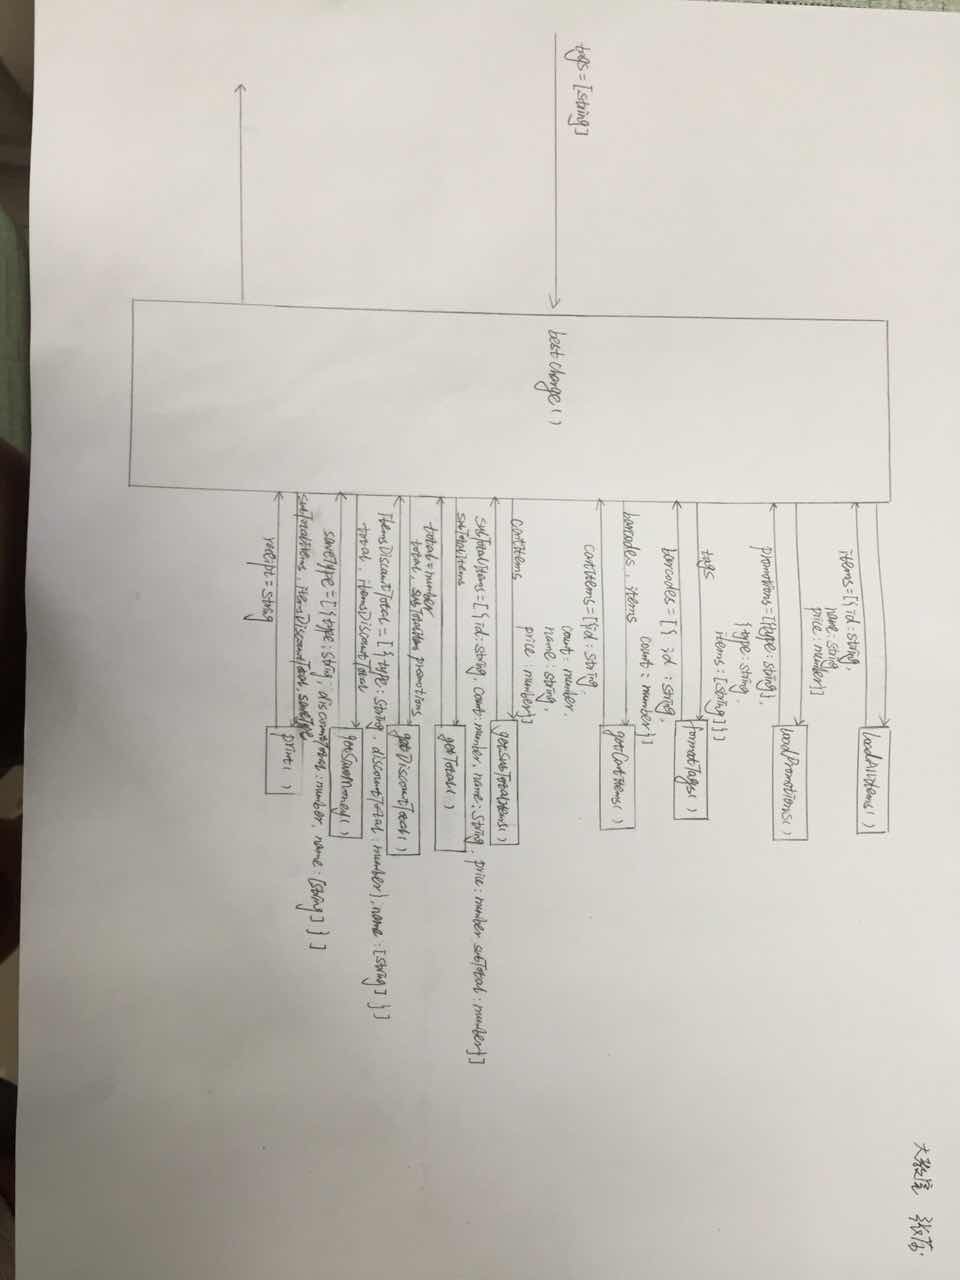 大数宝 张茜
tags=[string]
bestCharge()
loadAllItems()
items=[{id:string,
name:string,
price:number}]
loadPromotions()
promotions=[{type:string},
{type:string,
items:[string]}]
tags
formatTags()
barcodes=[{id:string,
count:number}]
barcodes, items
getCartItems()
cartItems=[{id:string,
count:number,
name:string,
price:number}]
cartItems
getSubTotalItems()
subTotalItems=[{id:string, count:number, name:string, price:number subTotal:number}]
subTotalItems
getTotal()
total=number
total, subTotalItem promotions
getDiscountTotal()
ItemsDiscountTotal=[{type:string, discountTotal:number}, name:[string]}]
total, itemsDiscountTotal
getSaveMoney()
saveType=[{type:string, discountTotal:number, name:[string]}]
subTotalItems, itemsDiscountTotal, saveType
print()
receipt=string